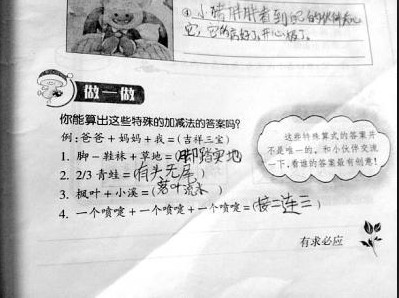 ④小猪胖胖看到自己的伙伴
做一做
你能算出这些特殊的加减法的答案吗?
例:爸爸+妈妈+我=(吉祥三宝)
1. 脚-鞋袜+草地=(脚踏实地
2. 2/3 青蛙=(有头无尾)
3. 枫叶+小溪=(落叶流水)
4. 一个喷嚏+一个喷嚏+一个喷嚏=(接二连三)
这些特殊算式的答案并
不是唯一的,和小伙伴交流
一下,看谁的答案最有创意!
有求必应